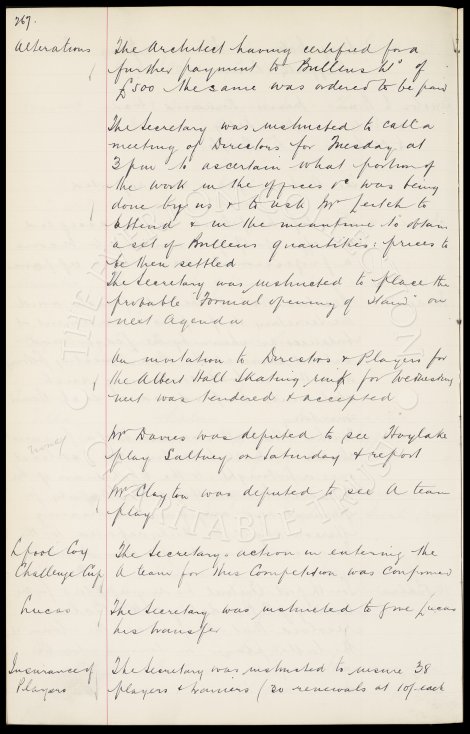 267.
Alterations The Architect having certified for a
further payment to Bullens Ld of
£500 the same was ordered to be paid
The Secretary was instructed to call a
meeting of Directors for Tuesday at
3pm to ascertain what portion of
the work in the offices &c was being
done by us & to ask Mr Leitch to
attend & in the meantime to obtain
a set of Bullens quantities: prices to
be then settled
The Secretary was instructed to place the
probable "Formal opening of Stand" on
next Agenda
An invitation to Directors & Players for
the Albert Hall Skating rink for Wednesday
next was tendered & accepted
Mr Davies was deputed to see Hoylake
play Saltney on Saturday & report
Mr Clayton was deputed to see A team
play
Lpool Coy The Secretary's action in entering the
Challenge Cup A team for this Competition was confirmed
Lucas The Secretary was instructed to give Lucas
his transfer
Insurance of The Secretary was instructed to insure 38
Players players & trainers (20 renewals at 10/- each